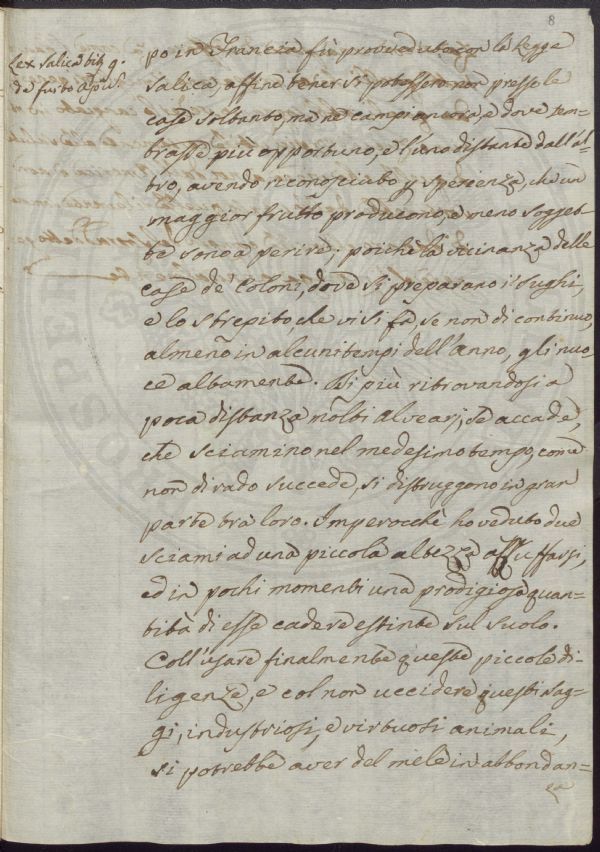 8
Lex salica tit: 9.
de furto apiu[m]
po in Francia fù proveduto con la Legge
salica, affine tener si potessero non presso le
case soltanto, ma ne campi ancora, e dove sem=
brasse più opportuno, e l'uno distante dall'al=
tro, avendo riconosciuto p sperienza, che un
maggior frutto producono, e meno sogget=
te sono a perire; poichè la vicinanza delle
case de' Coloni, dove si preparano i sughi,
e lo strepito che vi si fà, se non di continuo,
almeno in alcuni tempi dell'Anno, gli nuo=
ce altamente. Di più ritrovandosi a
poca distanza molti alveari, se accade,
che sciamino nel medesimo tempo, come
non di rado succede, si distruggono in gran
parte tra loro. Imperocchè ho veduto due
sciami ad una piccola altezza azzuffarsi,
ed in pochi momenti una prodigiosa quan=
tità di esse cadere estinte sul suolo.
Coll'usare finalmente queste piccole di=
ligenze, e col non uccidere questi sag=
gi, industriosi, e virtuosi animali,
si potrebbe aver del mele in abbondan=
za